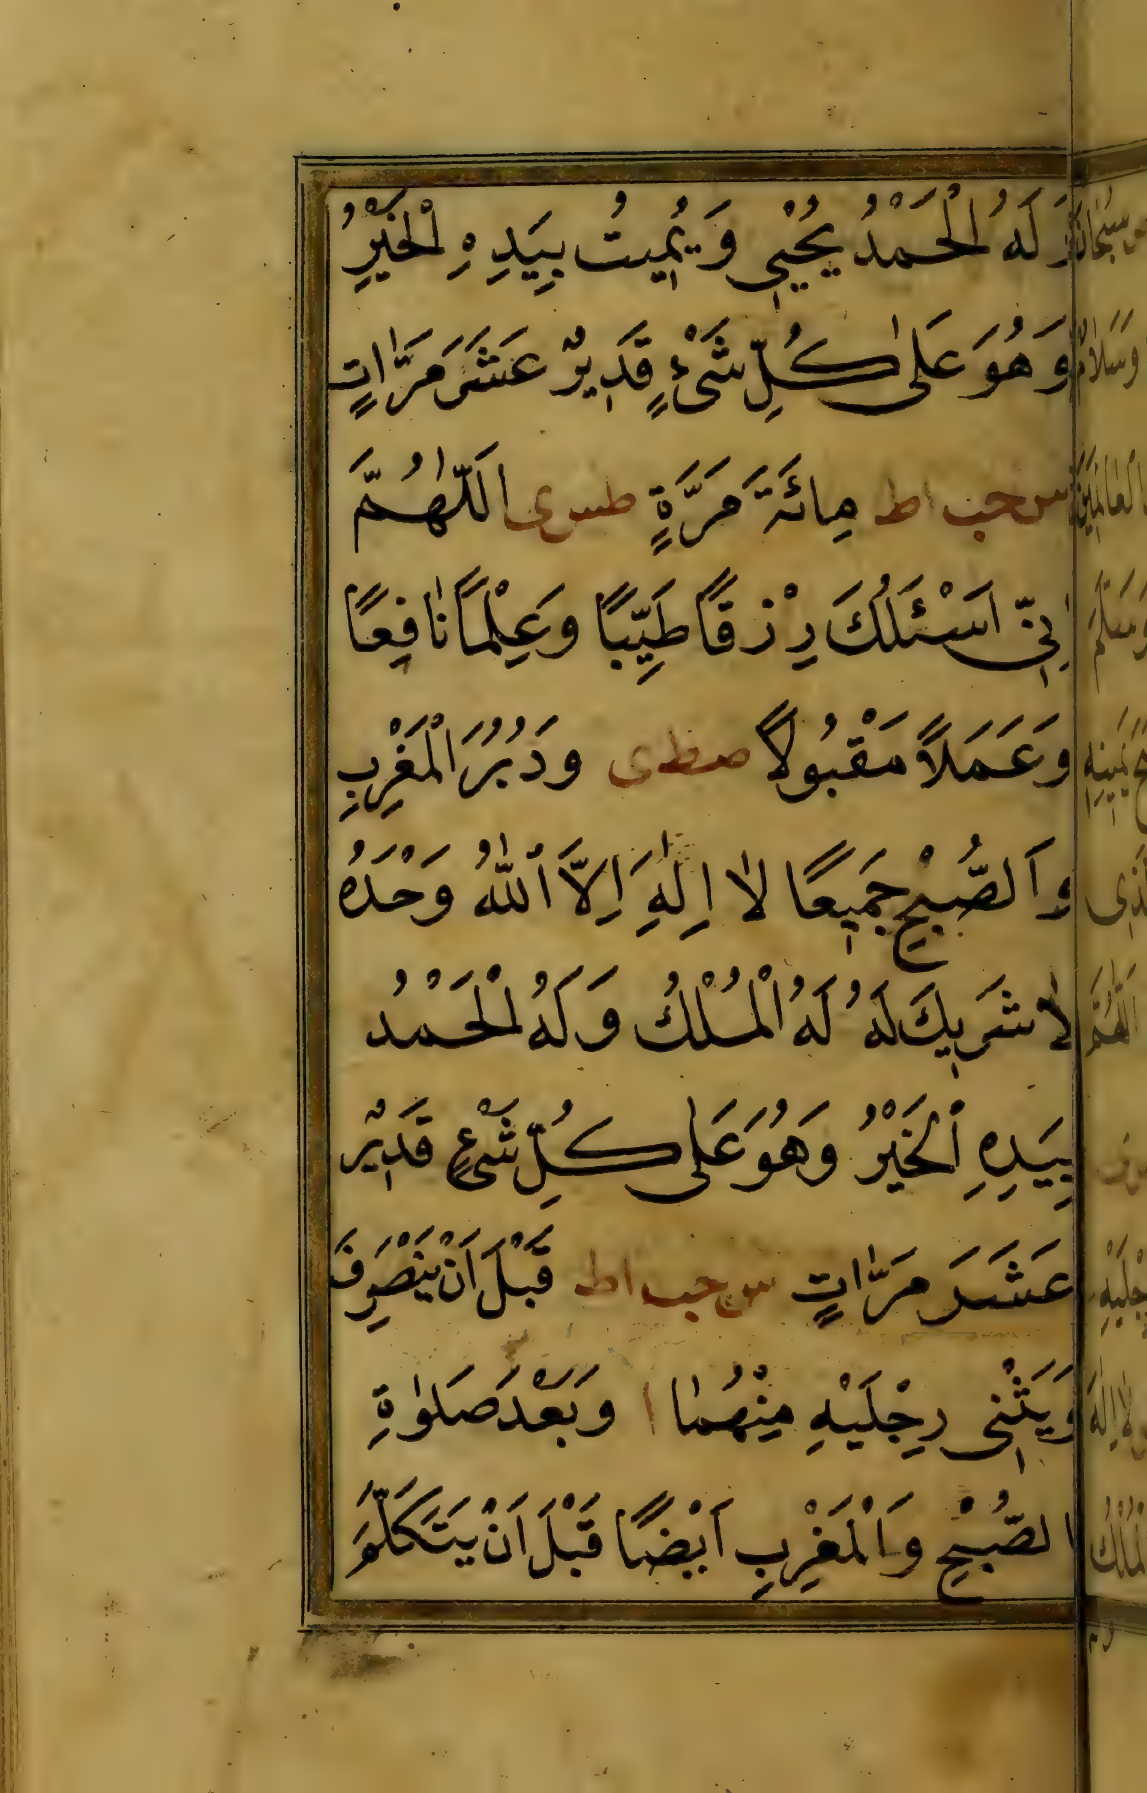 وَلَهُ الْحَمْدُ يُحْيِي وَيُمِيتُ بِيَدِهِ الْخَيْرُ
وَهُوَ عَلٰى كُلِّ شَيْءٍ قَدِيرٌ عَشَرَ مَرَّاتٍ
س حب اط مِائَةَ مَرَّةٍ طس ى اَللّٰهُمَّ
اِنِّي اَسْئَلُكَ رِزْقًا طَيِّبًا وَعِلْمًا نَافِعًا
وَعَمَلًا مَقْبُولًا صط ى وَدُبُرَ الْمَغْرِبِ
وَالصُّبْحِ جَمِيعًا لَا اِلٰهَ اِلَّا اللّٰهُ وَحْدَهُ
لَا شَرِيكَ لَهُ لَهُ الْمُلْكُ وَلَهُ الْحَمْدُ
بِيَدِهِ الْخَيْرُ وَهُوَ عَلٰى كُلِّ شَيْءٍ قَدِيرٌ
عَشَرَ مَرَّاتٍ س حب اط قَبْلَ اَنْ يَنْصَرِفَ
وَيَثْنِي رِجْلَيْهِ مِنْهُمَا ا وَبَعْدَ صَلٰوةِ
الصُّبْحِ وَالْمَغْرِبِ اَيْضًا قَبْلَ اَنْ يَتَكَلَّمَ